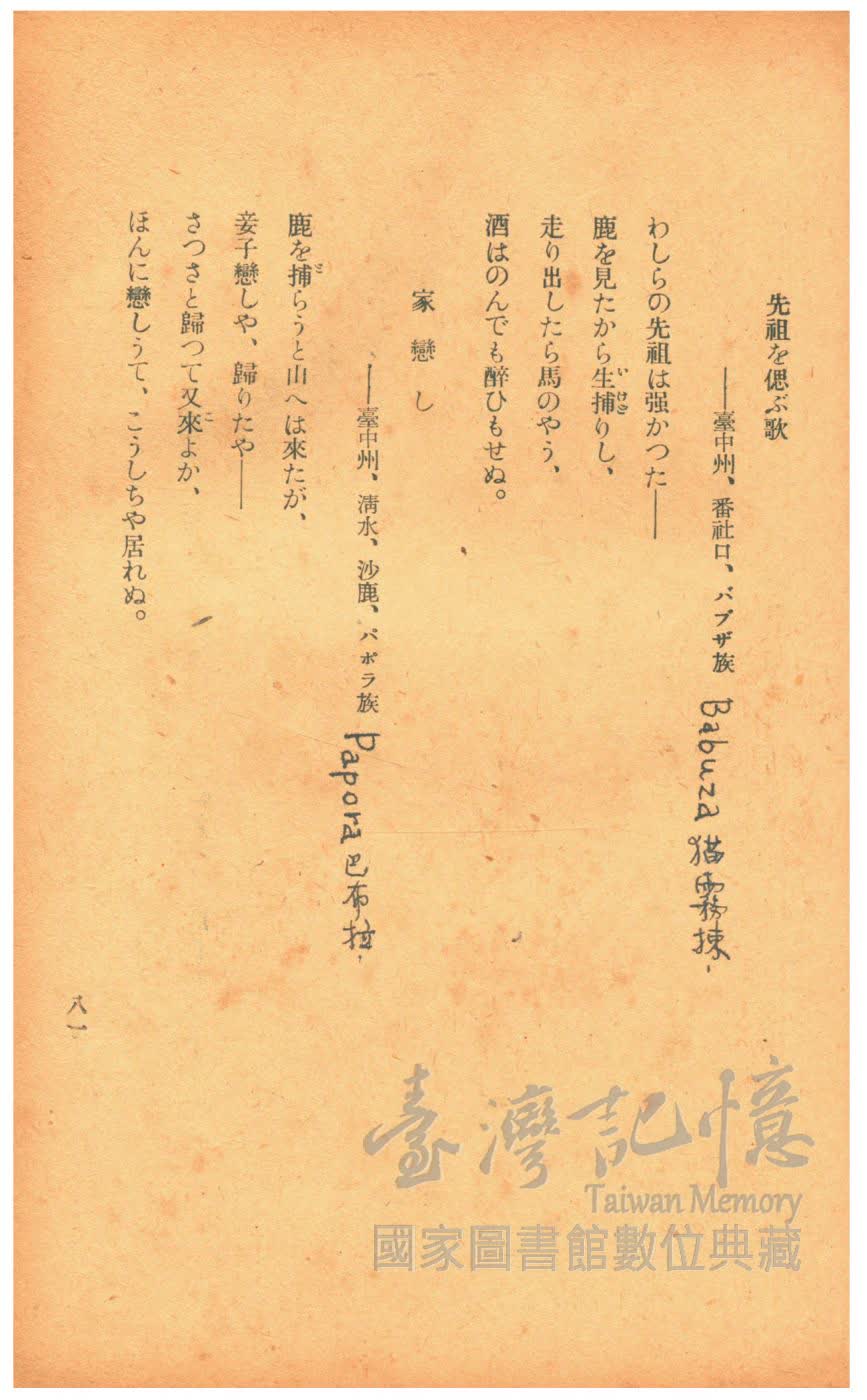 先祖を偲ぶ歌
――臺中州、番社口、バブザ族 Babuza 猫霧捒
わしらの先祖は强かつた――
鹿を見たから生捕りし、
走り出したら馬のやう、
酒はのんでも醉ひもせぬ。
家戀し
――臺中州、淸水、沙鹿、パポラ族 Papora 巴布拉
鹿を捕らうと山へは來たが、
妾子戀しや、歸りたや――
さつさと歸つて又來よか、
ほんに戀しうて、こうしちや居れぬ。
八一
臺灣記憶
Taiwan Memory
國家圖書館數位典藏